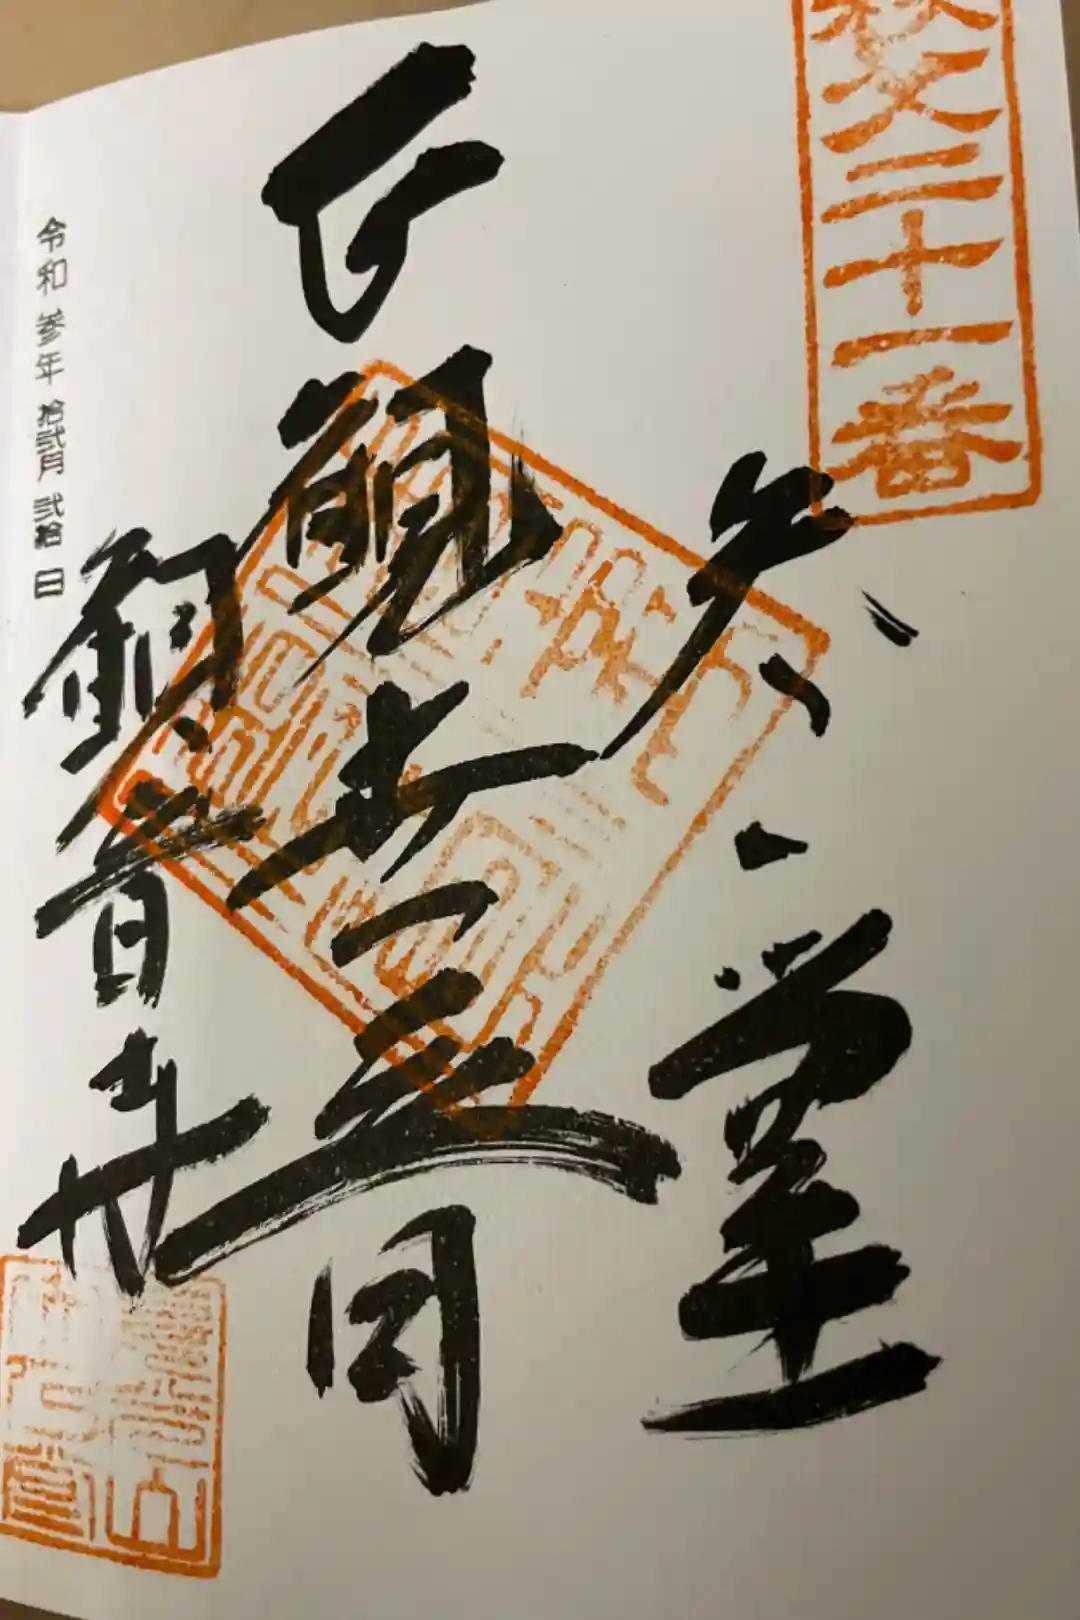 秩父二十一番
矢之堂
正観世音
観音寺
令和参年拾弐月弐拾日